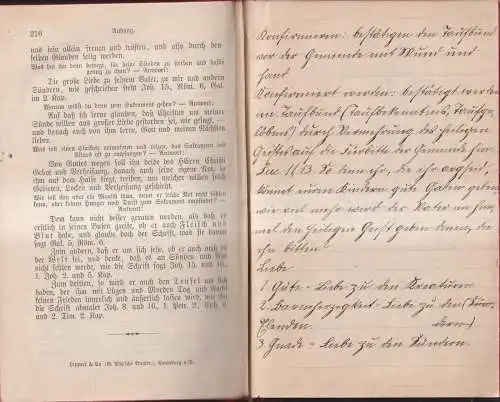 216 Anhang.
und sein allein freuen und trösten, und also durch den-
selben Glauben selig werden.
Was hat ihn denn bewegt, für deine Sünden zu sterben und dafür
genug zu thun? — Antwort:
Die große Liebe zu seinem Vater, zu mir und andern
Sündern, wie geschrieben steht Joh. 15, Röm. 6, Gal.
im 2. Kap.
Warum willst du denn zum Sakrament gehen? — Antwort:
Auf daß ich lerne glauben, daß Christus um meiner
Sünde willen aus großer Liebe gestorben sei, wie gesagt,
und danach auch von ihm lerne, Gott und meinen Nächsten
lieben.
Was soll einen Christen vermahnen und reizen, das Sakrament des
Altars oft zu empfangen? — Antwort:
Von Gottes wegen soll ihn beide des Herrn Christi
Gebot und Verheißung, danach auch seine eigene Not, so
ihm auf dem Halse liegt, treiben, um welcher willen solch
Gebieten, Locken und Verheißung geschieht.
Wie soll ihm aber ein Mensch thun, wenn er solche Not nicht fühlen
kann, oder keinen Hunger noch Durst zum Sakrament empfindet? —
Antwort:
Dem kann nicht besser geraten werden, als daß er
erstlich in seinen Busen greife, ob er auch Fleisch und
Blut habe, und glaube doch der Schrift, was sie davon
sagt Gal. 5, Röm. 6.
Zum andern, daß er um sich sehe, ob er auch noch in
der Welt sei, und denke, daß es an Sünden und Not
nicht fehlen werde, wie die Schrift sagt Joh. 15, und 16,
1. Joh. 2 und 5. Kap.
Zum dritten, so wird er auch den Teufel um sich
haben, der ihm mit Lügen und Morden Tag und Nacht
keinen Frieden innerlich und äußerlich lassen wird, wie ihn
die Schrift abmalet Joh. 8, und 16, 1. Petr. 5, Eph. 6
und 2. Tim. 2. Kap.
Lippert & Co. (G. Pätz'sche Buchdr.), Naumburg a/S.
Konfirmieren: bestätigen den Taufbund
vor der Gemeinde mit Mund und
Hand
Konfirmiert werden: bestätigt werden
im Taufbund (Taufbekenntnis, Taufge-
löbnis) durch Vermehrung des heiligen
Geistes auf die Fürbitte der Gemeinde hin
Luc. 11,13. So denn ihr, die ihr arg seid,
könnet euren Kindern gute Gaben geben,
wie viel mehr wird der Vater im Him-
mel den heiligen Geist geben denen, die
ihn bitten!
Liebe
1. Güte - Liebe zu den Kreaturen
2. Barmherzigkeit - Liebe zu den
Elenden.
3. Gnade - Liebe zu den Sündern.